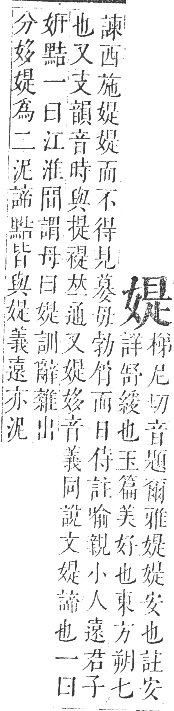 媞
梯尼切音題爾雅媞媞安也註安
詳舒緩也玉篇美好也東方朔七
諫西施媞媞而不得見嫫母勃屑而日侍註喻親小人遠君子
也又支韻音時與提禔𠀤通又媞姼音義同說文媞諦也一曰
妍黠一曰江淮間謂母曰媞訓辭雜出
分姼媞為二泥諦黠皆與媞義遠亦泥